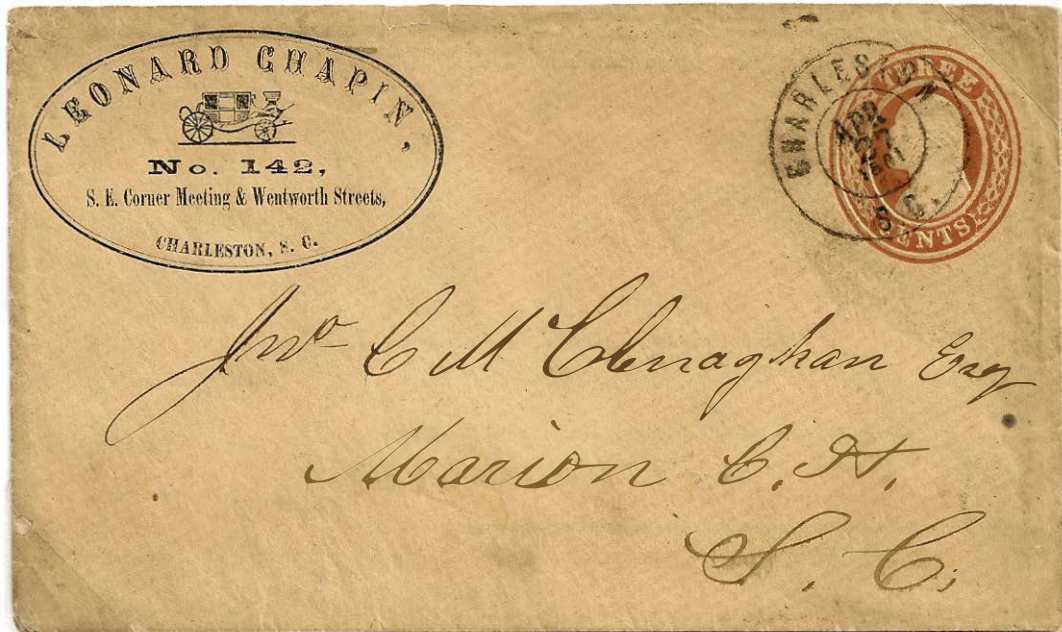 LEONARD CHAPIN,
No. 142,
S. E. Corner Meeting & Wentworth Streets,
CHARLESTON, S. C.
CHARLESTON
S. C.
APR
THREE
CENTS
Jno C McClenaghan Esq
Marion C. H.
S. C.